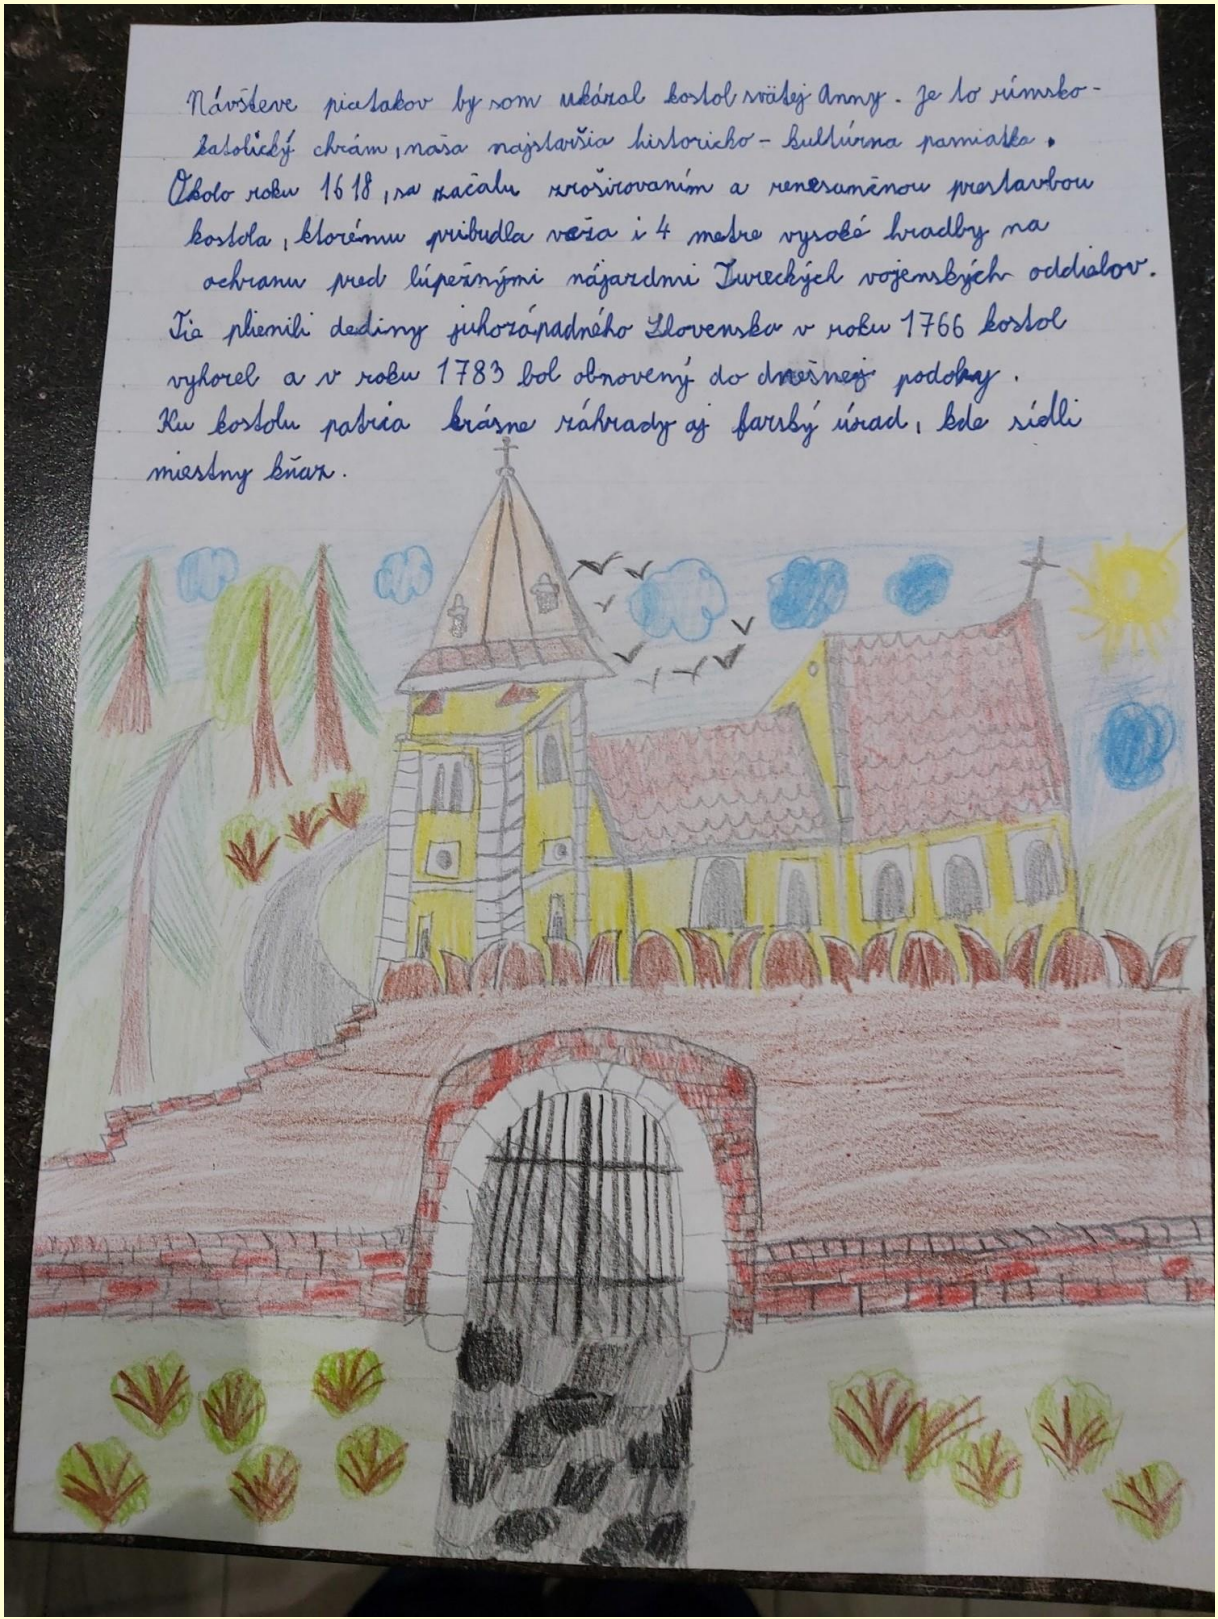 Návšteve piatakov by som ukázal kostol svätej Anny. Je to rímsko-
katolícký chrám, naša najstaršia historicko - kultúrna pamiatka.
Okolo roku 1618, sa začalu zrošírovaním a renesančnou prestavbou
kostola, ktorému pribudla veža i 4 metre vysoké hradby na
ochranu pred lúpežnými nájazdmi Tureckých vojenských oddielov.
Tie plienili dediny juhozápadného Slovenska v roku 1766 kostol
vyhorel a v roku 1783 bol obnovený do dnešnej podoby.
Ku kostolu patria krásne záhrady aj farský úrad, kde sídli
miestny kňaz.